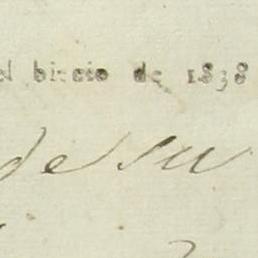 el bienio de 1838
de su